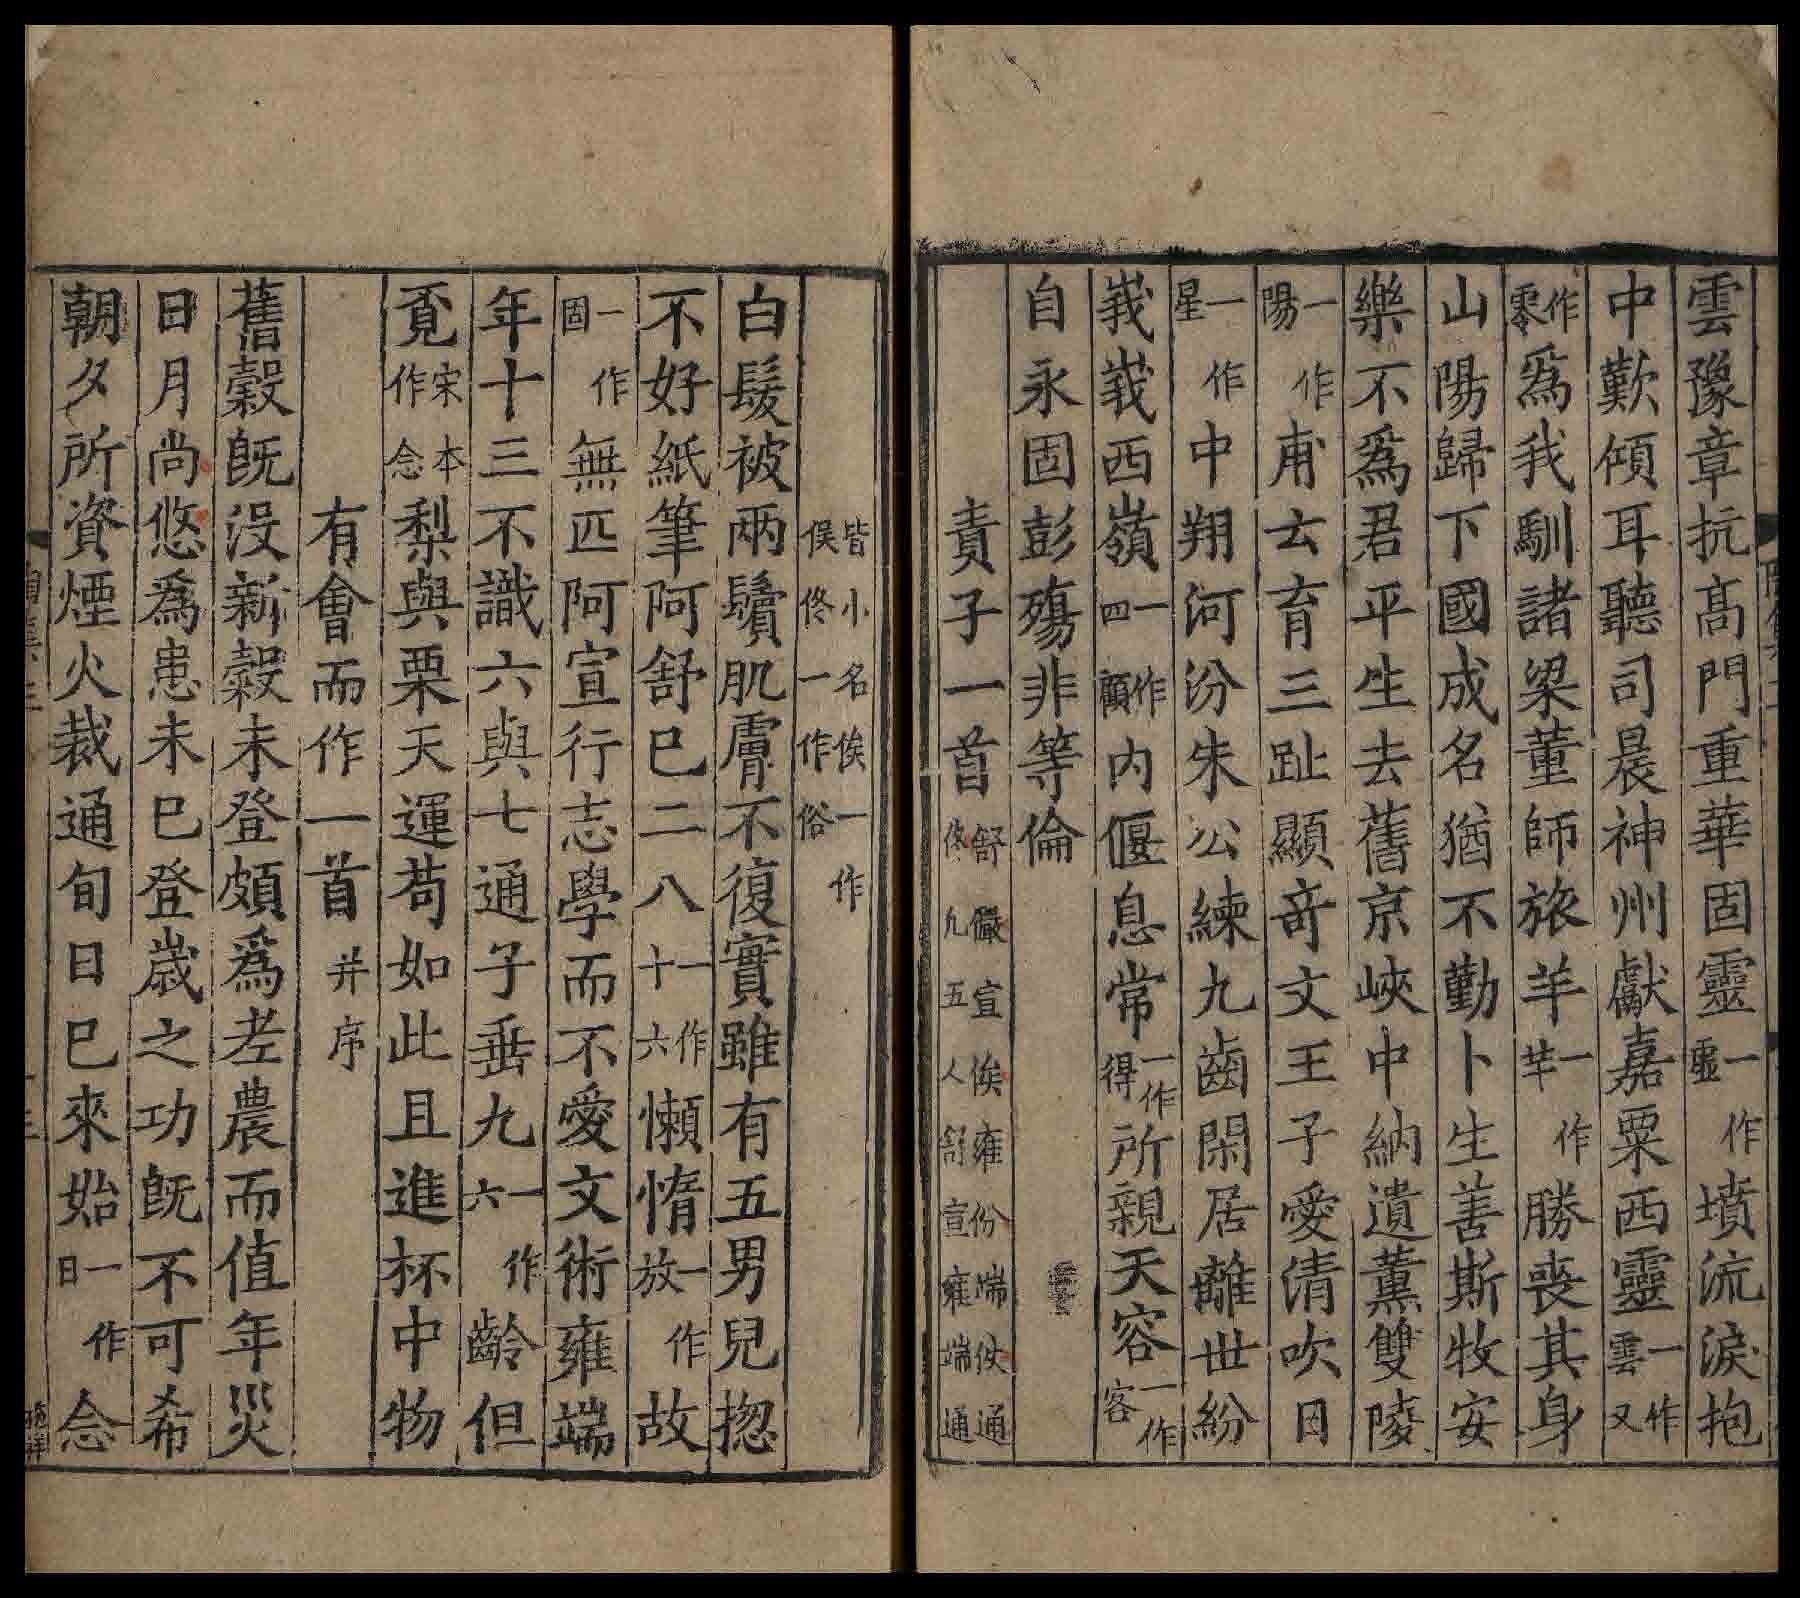 雲豫章抗髙門重華固靈一作虛墳流淚抱
中歎傾耳聽司晨神州獻嘉粟西靈一作雲又
作零爲我馴諸梁董師旅羊一作芉勝喪其身
山陽歸下國成名猶不勤卜生善斯牧安
樂不爲君平生去舊京峽中納遺薰雙陵
一作陽甫云育三趾顯竒文王子愛清吹日
一作星中翔河汾朱公練九齒閑居離世紛
峩峩西嶺一作四顧內偃息常一作得所親天容一作客
自永固彭殤非等倫
責子一首舒儼宣俟雍份端佚通佟凡五人舒宣雍端通
皆小名俟一作俁佟一作俗
白髮被兩鬢肌膚不復實雖有五男兒揔
不好紙筆阿舒巳二八一作十六懶惰一作放故
一作固無匹阿宣行志學而不愛文術雍端
年十三不識六與七通子垂九一作六齡但
覔宋本作念梨與栗天運苟如此且進杯中物
有會而作一首并序
舊穀旣沒新穀未登頗爲老農而值年災
日月尚悠爲患未巳登歳之功旣不可希
朝夕所資煙火裁通旬日巳來始一作日念